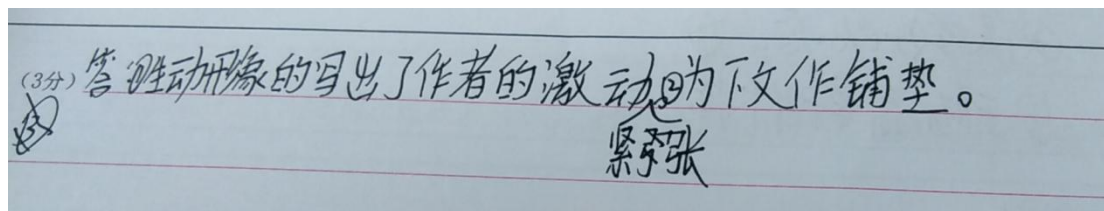 (3分)答①生动形象的写出了作者的激动、②为下文作铺垫。
紧张